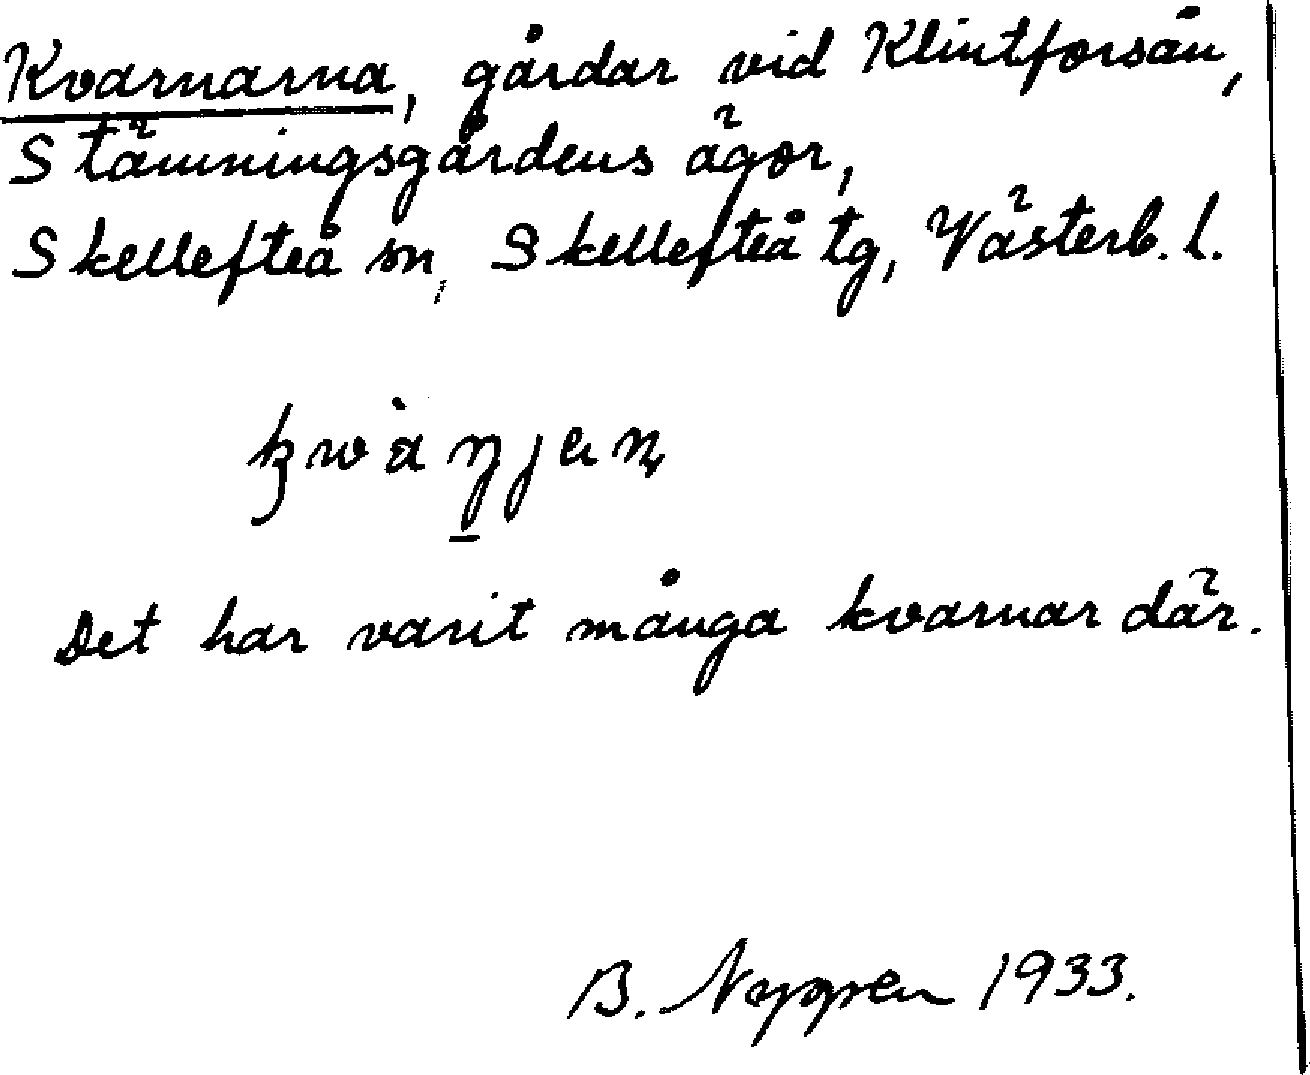 Kvarnarna, gårdar vid Klintforsån,
Stämningsgårdens ägor,
Skellefteå sn, Skellefteå tg, Västerb. l.
Det har varit många kvarnar där.
B. Nygren 1933.